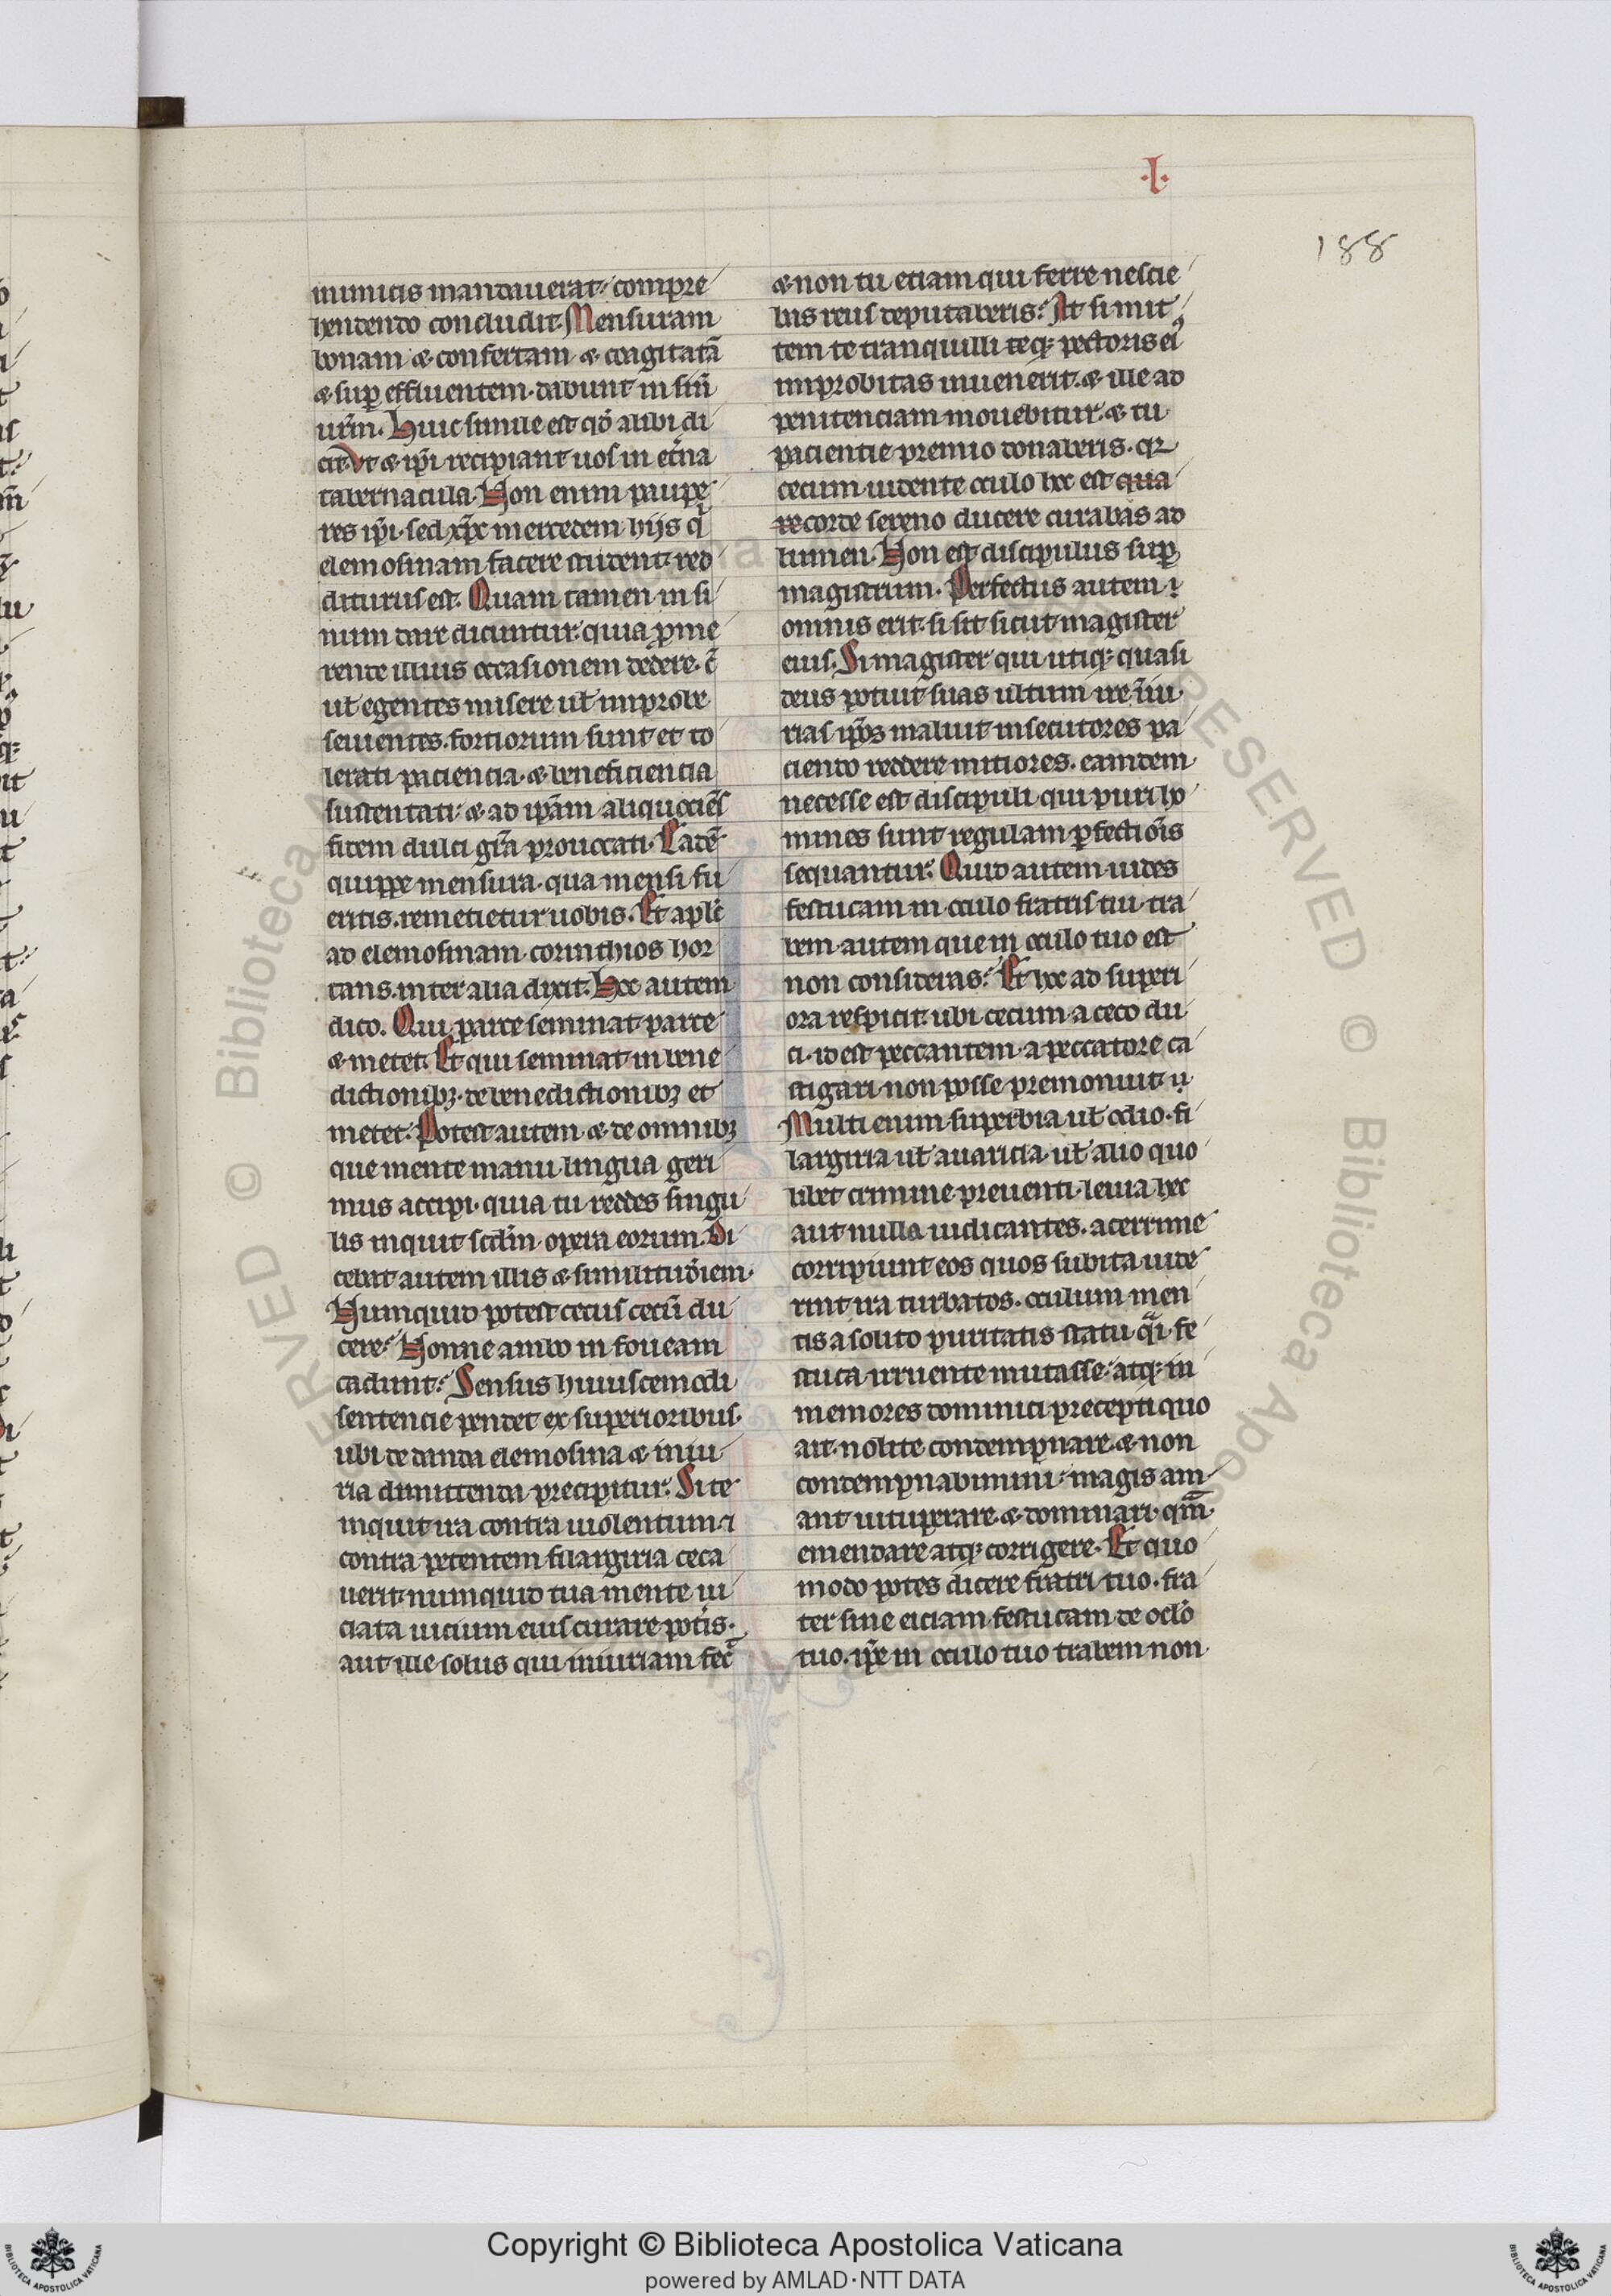 .I.
188
inimicis mandauerat compre
hendendo concludit. Mensuram
bonam & confertam & coagitatã
& sup effluentem dabunt in sinũ
ur̃m. Huic simile est qđ alibi di
cit. Vt & ip̃i recipiant uos in et̃na
tabernacula. Non enim paupe
res ip̃i. sed xp̃c mercedem hijs q̇
elemosinam facere student red
diturus est. Quam tamen in si
num dare dicuntur. quia ꝓme
rende illius occasionem dedere. c̃
ul̃ egentes misere ul̃ improbe
seuientes. fortiorum sunt et to
lerati paciencia. & beneficiencia
sustentati. & ad ip̃am aliquociẽs
fidem dulci gr̃a prouocati. Eadẽ
quippe mensura. qua mensi fu
eritis. remetietur uobis. Et apl̃c
ad elemosinam. corinthios hor
tans. inter alia dixit. Hoc autem
dico. Qui parce seminat. parce
& metet. Et qui seminat in bene
dictionibꝫ. de benedictionibꝫ et
metet. Potest autem & de omnibꝫ
que mente manu lingua geri
mus accipi. quia tu reddes singu
lis inquit scđm opera eorum. Di
cebat autem illis & similitudĩem.
Numquid potest cecus cecũ du
cere? Nonne ambo in foueam
cadunt? Sensus huiuscemodi
sentencie pendet ex superioribus.
ubi de danda elemosina & iniu
ria dimittenda precipitur. Si te
inquit ira contra uiolentum ⁊
contra petentem filargiria ceca
uerit. numquid tua mente ui
ciata uicium eius curare potis.
aut ille solus qui iniuriam fec̃
& non tu etiam qui ferre nescie
bas reus deputaberis? At si mit
tem te tranquilli teqꝫ pectoris ei᷒
improbitas inuenerit. & ille ad
penitenciam mouebitur. & tu
paciencie premio donaberis. qꝛ
cecum uidente oculo hoc est qua
re corde sereno ducere curabas ad
lumen. Non est discipulus sup
magistrum. Perfectus autem ⁊
omnis erit. si sit sicut magister
eius. Si magister qui utiqꝫ quasi
deus potuit suas ultum ire iniu
rias ip̃os maluit insecutores pa
ciendo reddere mitiores. eamdem
necesse est discipuli qui puri ho
mines sunt regulam ꝑfectiõis
sequantur. Quid autem uides
festucam in oculo fratris tui. tra
bem autem que in oculo tuo est
non consideras? Et hoc ad superi
ora respicit. ubi cecum a ceco du
ci. id est peccantem. a peccatore ca
stigari non posse premonuit.
Multi enim superbia ul̃ odio. fi
largiria ul̃ auaricia. ul̃ alio quo
libet crimine preuenti. leuia hec
aut nulla iudicantes. acerrime
corripiunt eos quos subita uide
rint ira turbatos. oculum men
tis a solito puritatis statu qᷓi fe
stuca irruente mutasse. atqꝫ in
memores dominici precepti quo
ait. nolite condempnare. & non
condempnabimini. magis am
ant uituperare. & dominari. qm̃
emendare atqꝫ corrigere. Et quo
modo potes dicere fratri tuo. fra
ter sine eiciam festucam de oclõ
tuo. ip̃e in oculo tuo trabem non
Copyright © Biblioteca Apostolica Vaticana
powered by AMLAD·NTT DATA